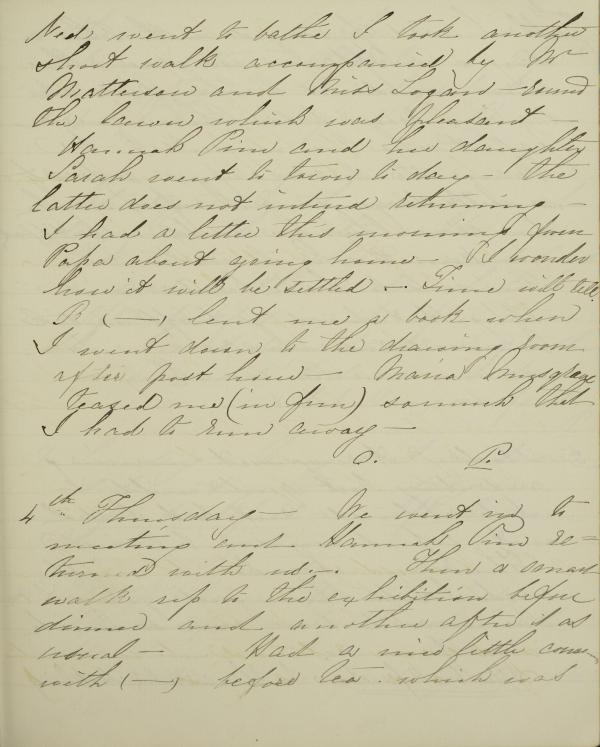 Ned went to bathe I took another
short walk accompanied by Mr
Matterson and Miss Logan - round
the lawn which was pleasant -
Hannah Pim and her daughter
Sarah went to town to day - the
latter does not intend returning -
I had a letter this morning from
Papa about going home - I wonder
how it will be settled - Time will tell.
R (—) lent me a book when
I went down to the drawing room
after post hour - Maria Musgrave
teased me (in fun) so much that
I had to run away -
O. P.
4th Thursday - We went in to
meeting and Hannah Pim re=
turned with us. - Then a smart
walk up to the exhibition before
dinner and another after it as
usual - Had a nice little
with (—) before tea. which was